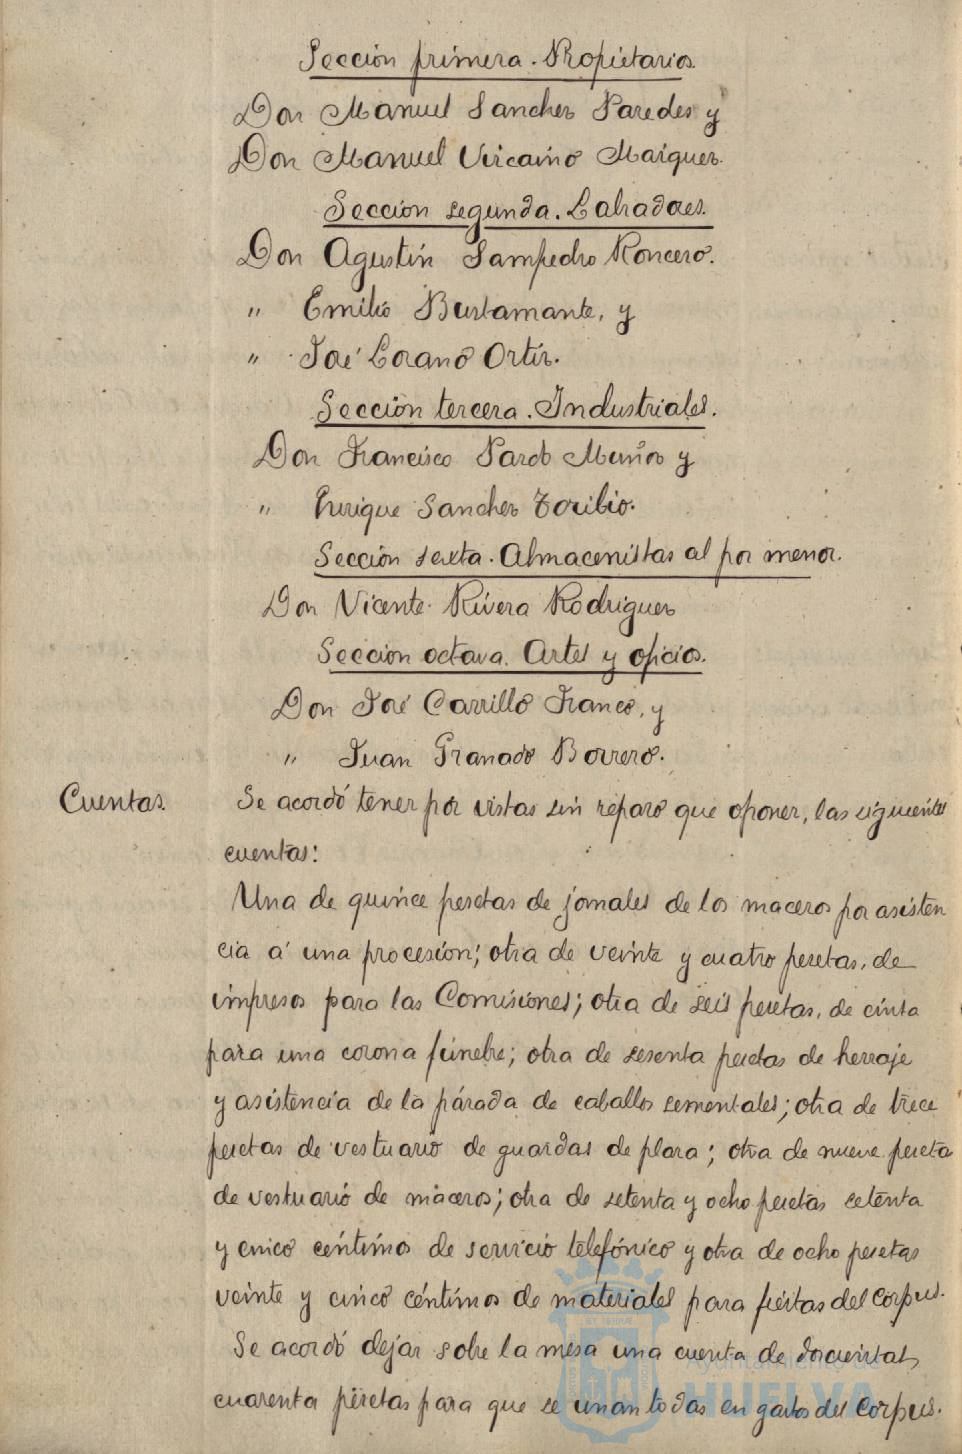 Sección primera. Propietarios.
Don Manuel Sanchez Paredes y
Don Manuel Vizcaino Marquez.
Sección segunda. Labradores.
Don Agustín Sampedro Roncero.
" Emilio Bustamante, y
" José Lozano Ortíz.
Sección tercera. Industriales.
Don Francisco Pardo Muñoz y
" Enrique Sanchez Toribio.
Sección sexta. Almacenistas al por menor.
Don Vicente Rivera Rodriguez
Sección octava. Artes y oficios.
Don José Carrillo Franco, y
" Juan Granado Borrero.
Cuentas. Se acordó tener por vistas sin reparo que oponer, las siguientes
cuentas:
Una de quince pesetas de jornales de los maceros por asisten
cia á una procesión; otra de veinte y cuatro pesetas, de
impresos para las Comisiones; otra de seis pesetas, de cinta
para una corona fúnebre; otra de sesenta pesetas de herraje
y asistencia de la párada de caballos sementales; otra de trece
pesetas de vestuario de guardas de plaza; otra de nueve peseta
de vestuario de maceros; otra de setenta y ocho pesetas setenta
y cinco céntimos de servicio telefónico y otra de ocho pesetas
veinte y cinco céntimos de materiales para fiestas del Corpus.
Se acordó dejar sobre la mesa una cuenta de doscientas
cuarenta pesetas para que se unan todas en gastos del Corpus.
Ayuntamiento de
HUELVA